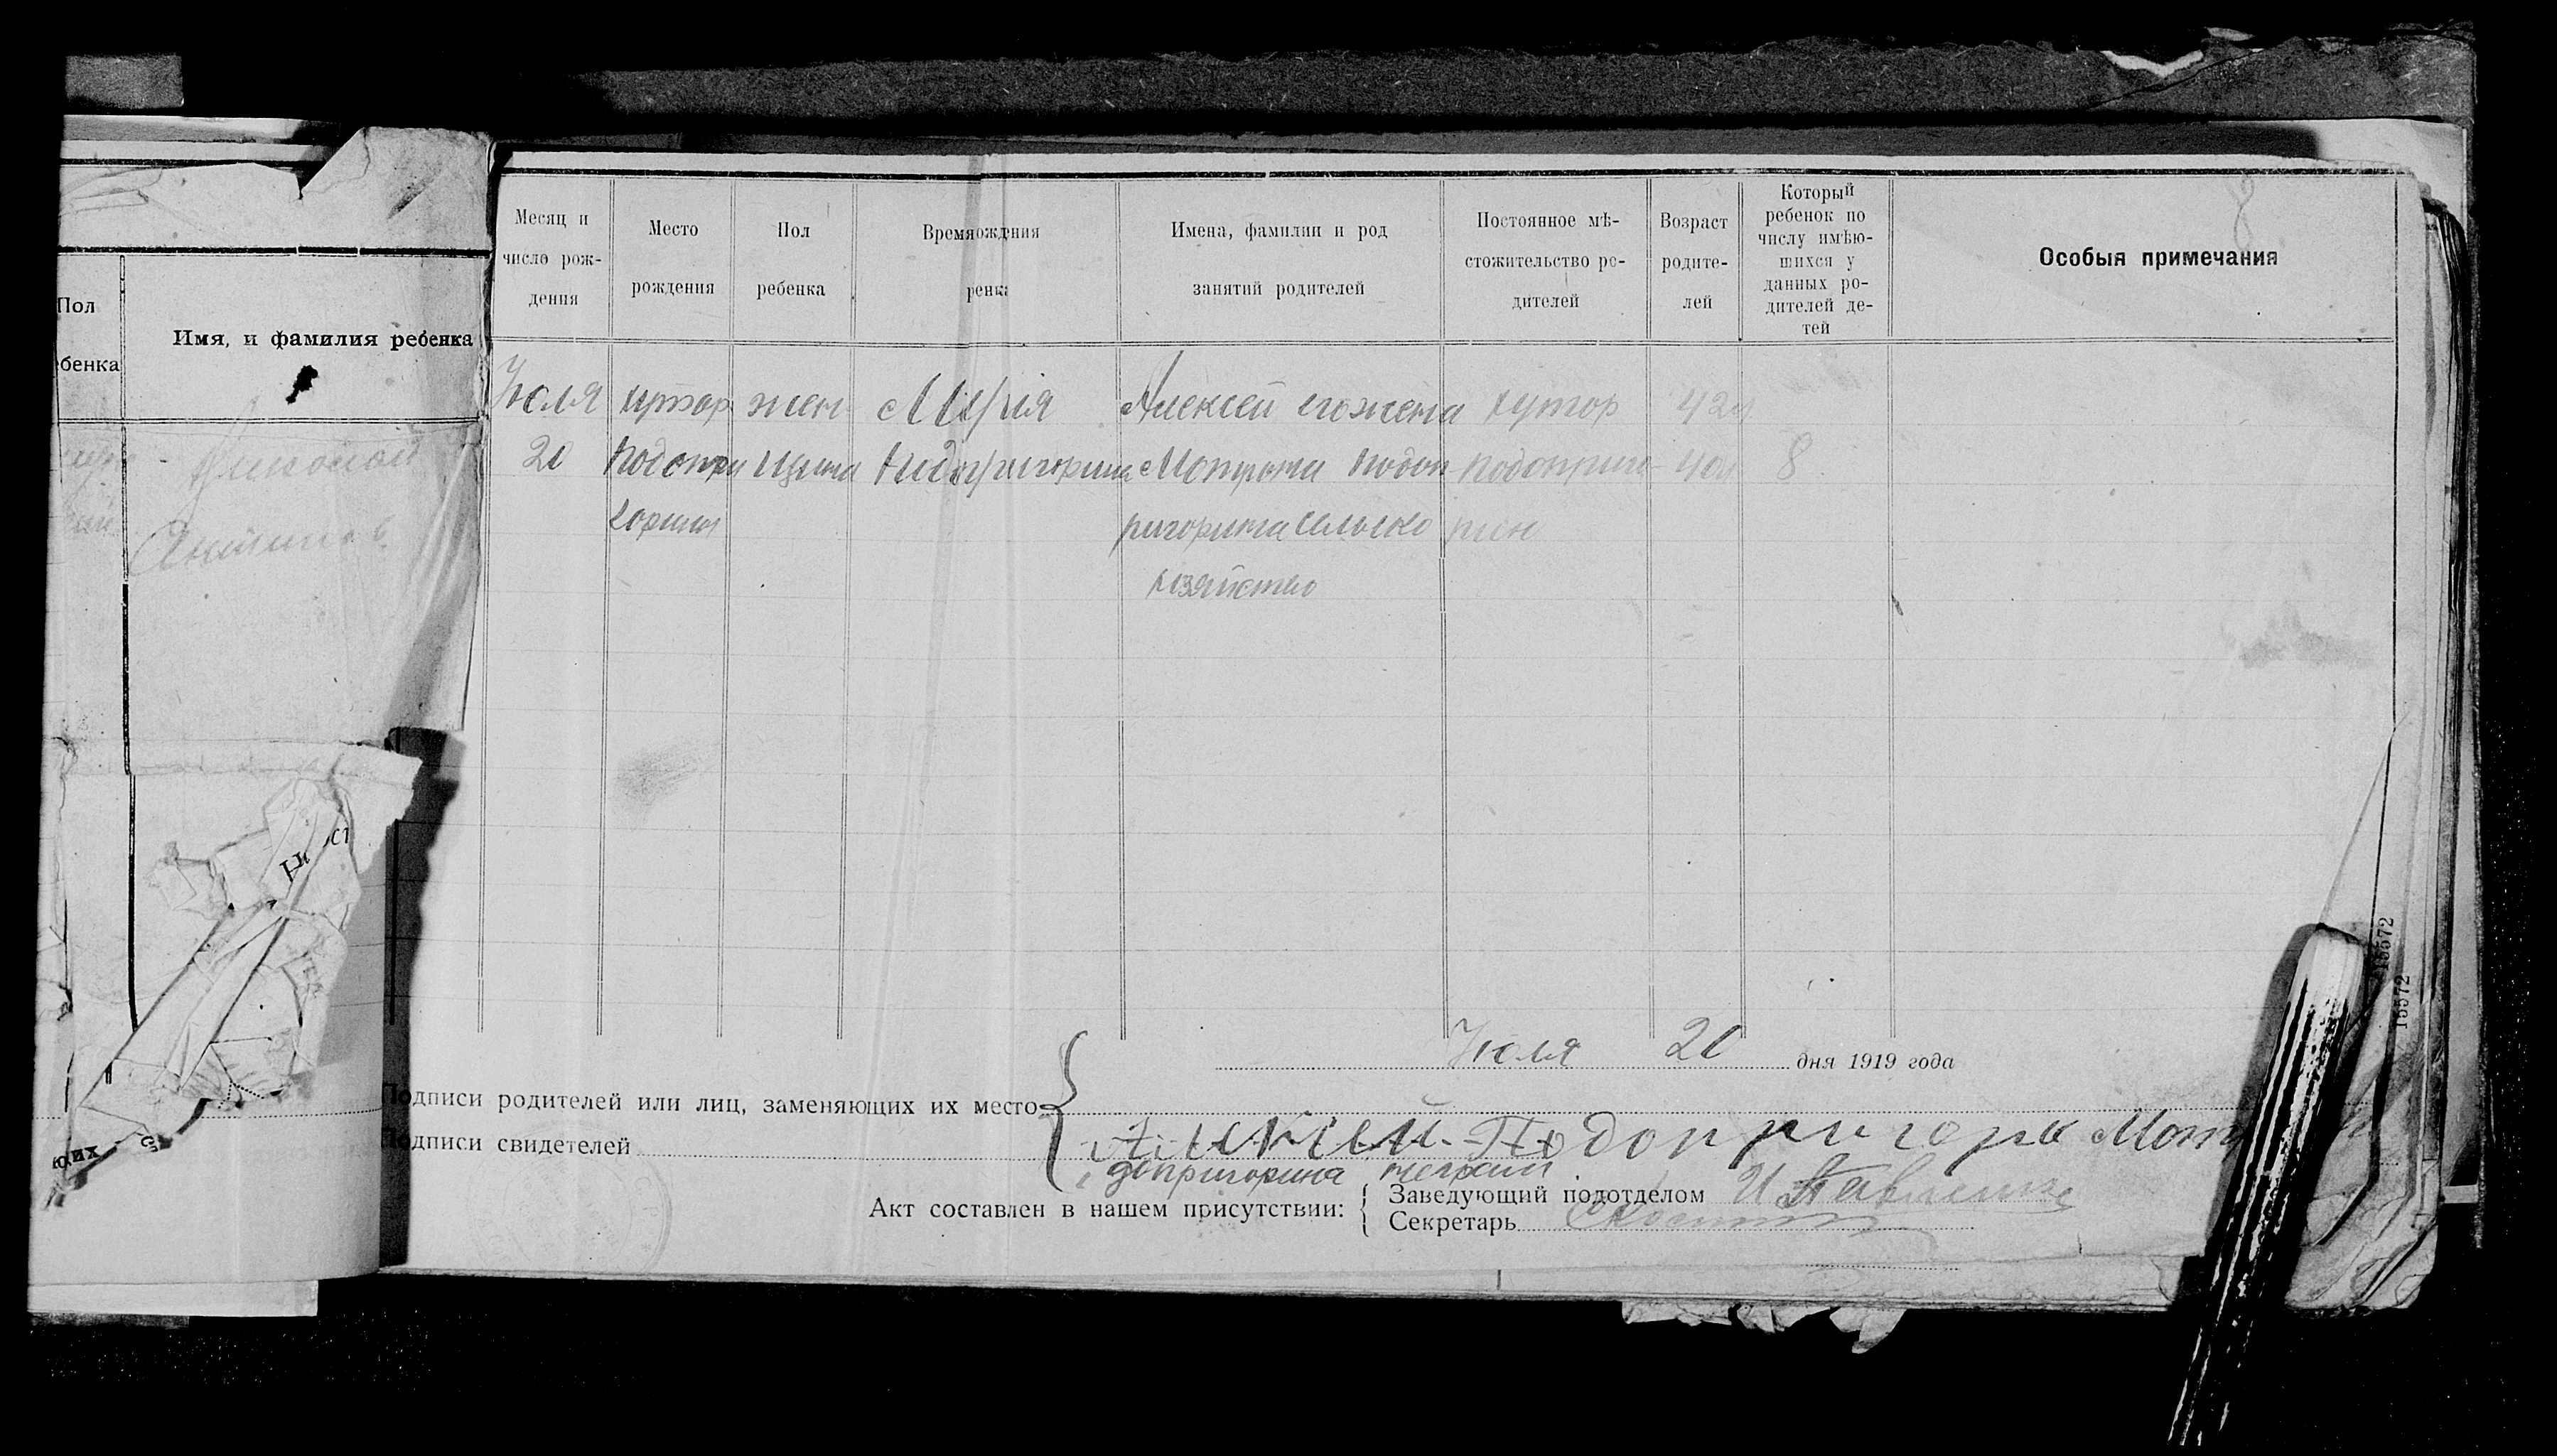 Пол
бенка
Имя, и фамилия ребенка
Месяц и
число рож-
дения
Место
рождения
Пол
ребенка
Время ождния
ренка
Имена, фамилии и род
занятий родителей
Постоянное мѣ-
стожительство ро-
дителей
Возраст
родите-
лей
Который
ребенок по
числу имѣю-
шихся у
данных ро-
дителей де-
тей
Особыя примечания
8
Июля
20
хутор
Подопри
горин
жен
щина
Мария
Подопригорина
Алексей его жена
Мотрона Подоп
ригорина сельско
хозяйство
хутор
Подоприго
рин
42
40
8
Июля 20 дня 1919 года
Подписи родителей или лиц, заменяющих их место
Подписи свидетелей
Подопригора
допригорина
Акт составлен в нашем присутствии:
Заведующий подотделом И Павленко
Секретарь
15572
15572